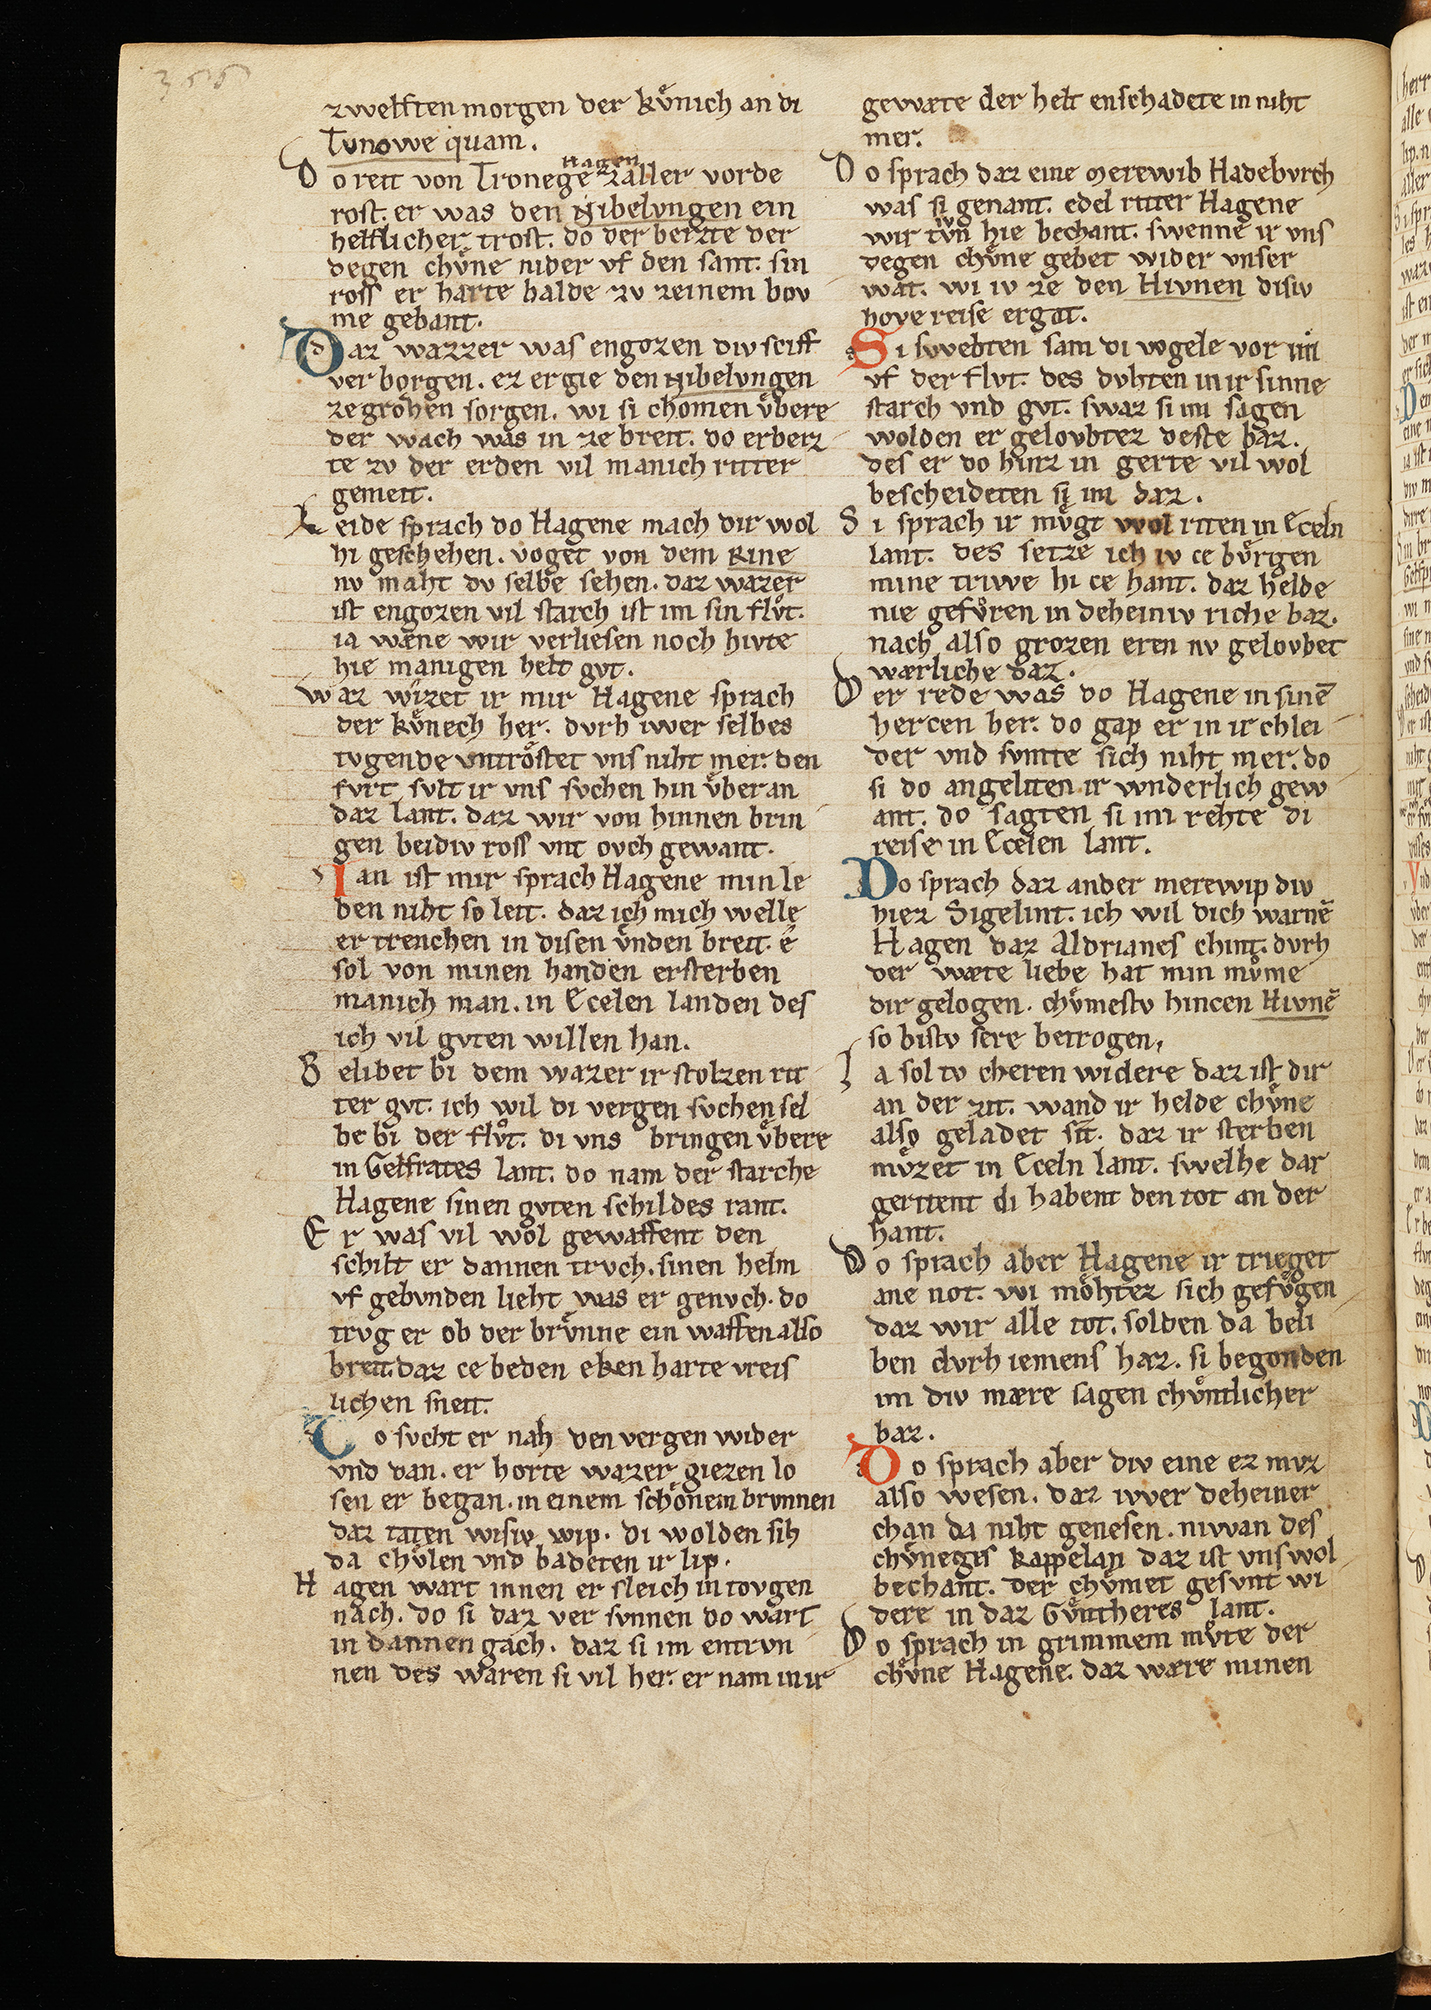 356
zwelften morgen der kuͦnich an di
Tvnowe quam.
Do reit von Tronege Hagen zaller vorde
rost. er was den Nibelvngen ein
helflicher trost. do der berzte der
degen chuͤne nider vf den sant. sin
ross er harte balde zv zeinem bov
me gebant.
Daz wazzer was engozen div sciff
verborgen. ez ergie den Nibelvngen
ze grozen sorgen. wi si chomen vͤbere
der wach was in ze breit. do erberz
te zv der erden vil manich ritter
gemeit.
Leide sprach do Hagene mach dir wol
hi geschehen. voget von dem Rine
nv maht dv selbe sehen. daz wazer
ist engozen vil starch ist im sin flvͦt.
ia wæne wir verliesen noch hivte
hie manigen helt gvt.
Waz wizet ir mir Hagene sprach
der kuͤnech her. dvrh iwer selbes
tvgende vntroͤstet vns niht mer. den
fvrt svlt ir vns svchen hin vͤber an
daz lant. daz wir von hinnen brin
gen beidiv ross vnt ovch gewant.
Ian ist mir sprach Hagene min le
ben niht so leit. daz ich mich welle
ertrenchen in disen vͤnden breit. e
sol von minen handen ersterben
manich man. in Ecelen landen des
ich vil gvten willen han.
Belibet bi dem wazer ir stolzen rit
ter gvt. ich wil di vergen svchen sel
be bi der flvͦt. di vns bringen vͤbere
in Gelfrates lant. do nam der starche
Hagene sinen gvten schildes rant.
Er was vil wol gewaffent den
schilt er dannen trvch. sinen helm
vf gebvnden lieht was er genvch. do
trvg er ob der brvͤnne ein waffen also
breit. daz ce beden eken harte vreis
lichen sneit.
Do svcht er nah den vergen wider
vnd dan. er horte wazer giezen lo
sen er began. in einem schonem brvnnen
daz taten wisiv wip. di wolden sih
da chvͤlen vnd badeten ir lip.
Hagen wart innen er sleich in tovgen
nach. do si daz ver svnnen do wart
in dannen gach. daz si im entrvn
nen des waren si vil her. er nam in ir
gewæte der helt enschadete in niht
mer.
Do sprach daz eine merewib Hadebvrch
was si genant. edel ritter Hagene
wir tvͦn hie bechant. swenne ir vns
degen chvͤne gebet wider vnser
wat. wi iv ze den Hivnen disiv
hove reise ergat.
Si swebten sam di vogele vor im
vf der flvt. des dvhten in ir sinne
starch vnd gvt. swaz si im sagen
wolden er gelovbtez deste baz.
des er do hinz in gerte vil wol
bescheideten si im daz.
Si sprach ir mvͤgt wol riten in Eceln
lant. des setze ich iv ce bvͤrgen
mine triwe hi ce hant. daz helde
nie gefvͤren in deheiniv riche baz.
nach also grozen eren nv gelovbet
wærliche daz.
Der rede was do Hagene in sinē
hercen her. do gap er in ir chlei
der vnd svmte sich niht mer. do
si do angeliten ir wnderlich gew
ant. do sagten si im rehte di
reise in Ecelen lant.
Do sprach daz ander merewip div
hiez Sigelint. ich wil dich warnē
Hagen daz Aldrianes chint. dvrh
der wæte liebe hat min mvͦme
dir gelogen. chvͤmestv hincen Hivnē
so bistv sere betrogen,
Ia sol tv cheren widere daz ist dir
an der zit. wand ir helde chvͤne
also geladet sit. daz ir sterben
mvͤzet in Eceln lant. swelhe dar
geritent di habent den tot an der
hant.
Do sprach aber Hagene ir trieget
ane not. wi moͤhtez sich gefvͤgen
daz wir alle tot. solden da beli
ben dvrh iemens haz. si begonden
im div mære sagen chvͤntlicher
baz.
Do sprach aber div eine ez mvz
also wesen. daz iwer deheiner
chan da niht genesen. niwan des
chvͤneges kappelan daz ist vns wol
bechant. der chvͤmet gesvnt wi
dere in daz Gvͤntheres lant.
Do sprach in grimmem mvͦte der
chvͤne Hagene. daz wære minen